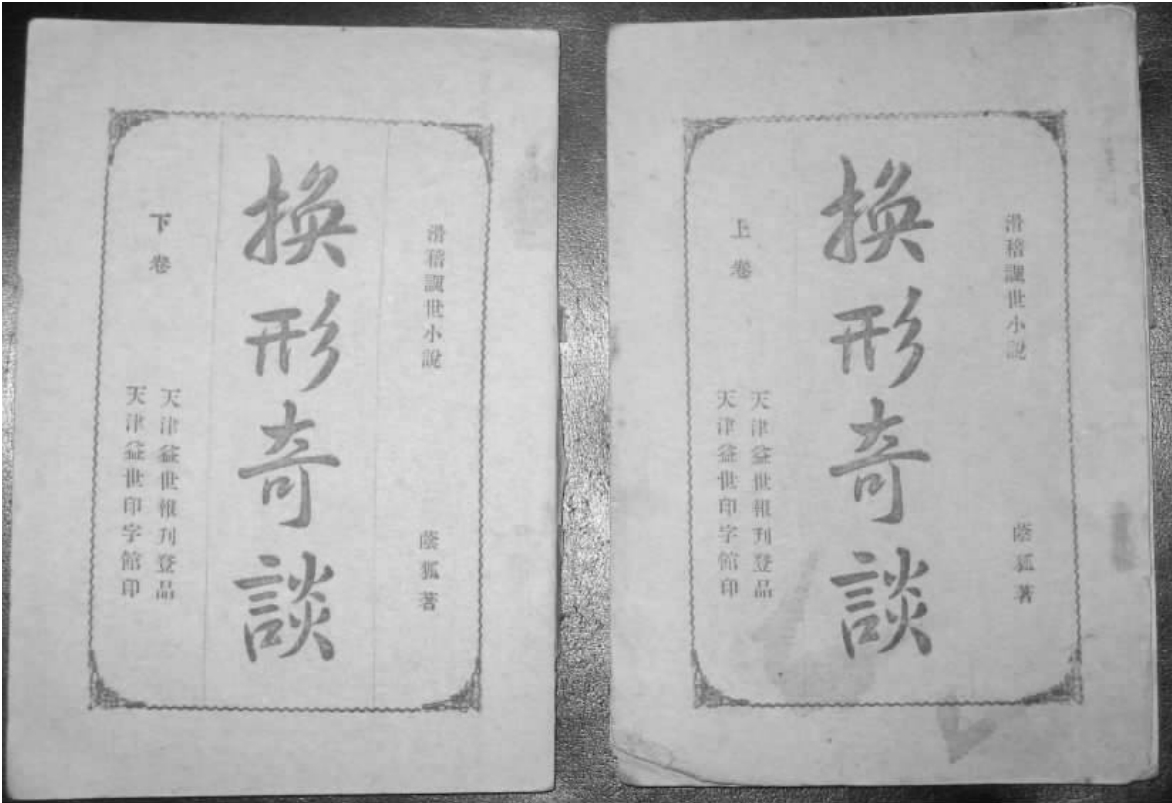 滑稽諷世小說
蔭狐著
換形奇談
上卷
天津益世報刊登品
天津益世印字館印
滑稽諷世小說
蔭狐著
換形奇談
下卷
天津益世報刊登品
天津益世印字館印